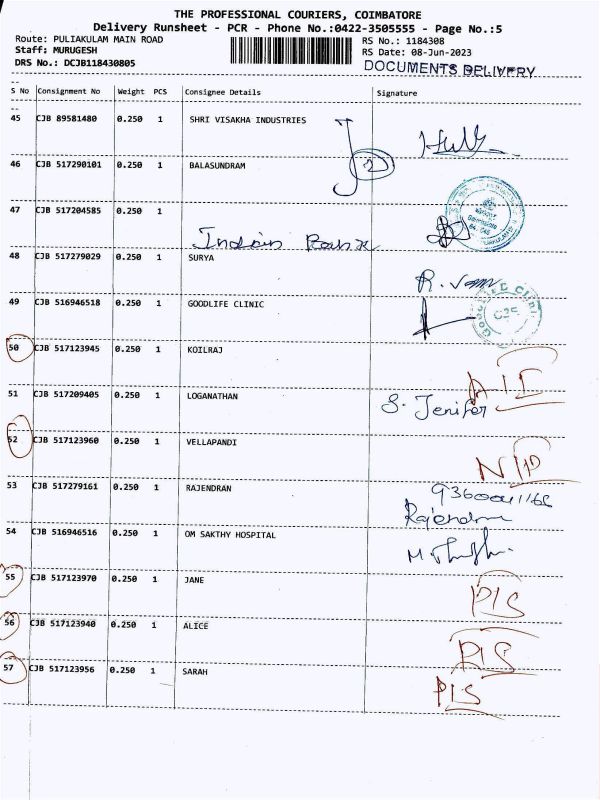 THE PROFESSIONAL COURIERS, COIMBATORE
Delivery Runsheet - PCR - Phone No.:0422-3505555 - Page No.:5
Route: PULIAKULAM MAIN ROAD RS No.: 1184308
Staff: MURUGESH RS Date: 08-Jun-2023
DRS No.: DCJB118430805 DOCUMENTS DELIVERY
S No Consignment No Weight PCS Consignee Details Signature
45 CJB 89581480 0.250 1 SHRI VISAKHA INDUSTRIES
46 CJB 517290101 0.250 1 BALASUNDRAM
2
47 CJB 517204585 0.250 1
Indain Bank
48 CJB 517279029 0.250 1 SURYA
R.
49 CJB 516946518 0.250 1 GOODLIFE CLINIC
50 CJB 517123945 0.250 1 KOILRAJ
51 CJB 517209405 0.250 1 LOGANATHAN
S. Jenifer
52 CJB 517123960 0.250 1 VELLAPANDI
53 CJB 517279161 0.250 1 RAJENDRAN
Rajendran
54 CJB 516946516 0.250 1 OM SAKTHY HOSPITAL
55 CJB 517123970 0.250 1 JANE
P/S
56 CJB 517123940 0.250 1 ALICE
P/S
57 CJB 517123956 0.250 1 SARAH
P/S